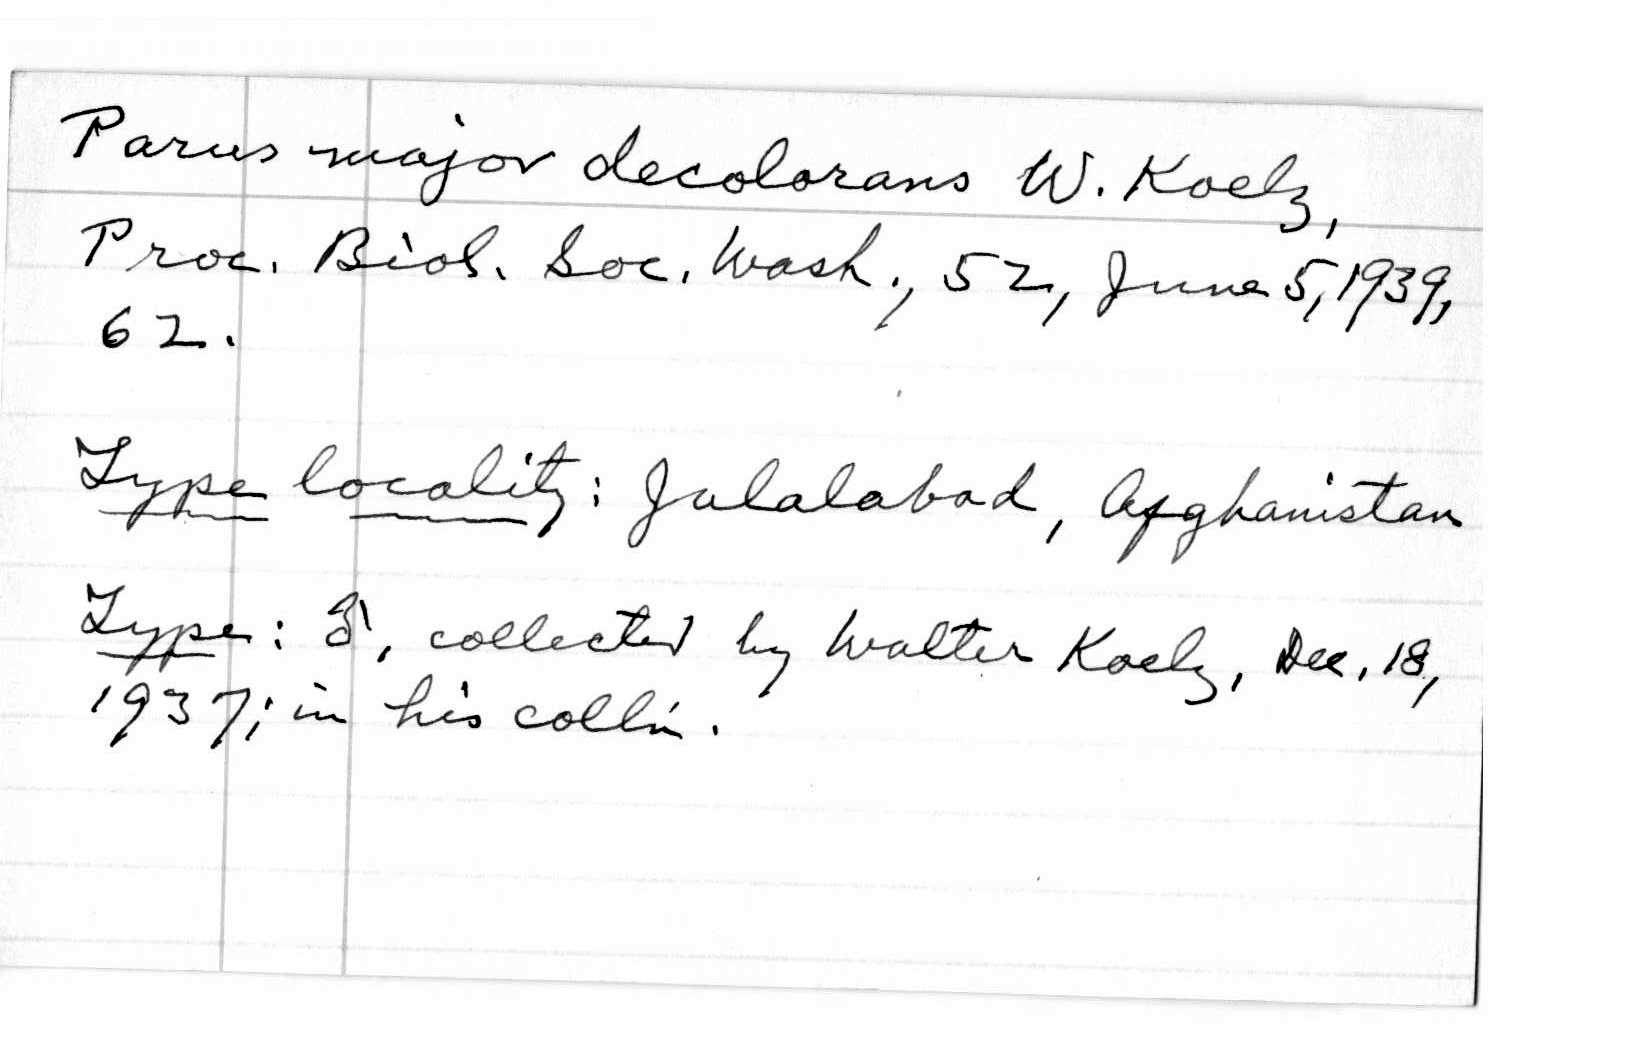 Parus major decolorans W. Koelz,
Proc. Biol. Soc. Wash., 52, June 5, 1939,
62.
Type locality: Jalalabad, Afghanistan
Type: ♂, collected by Walter Koelz, Dec. 18,
1937; in his coll'n.